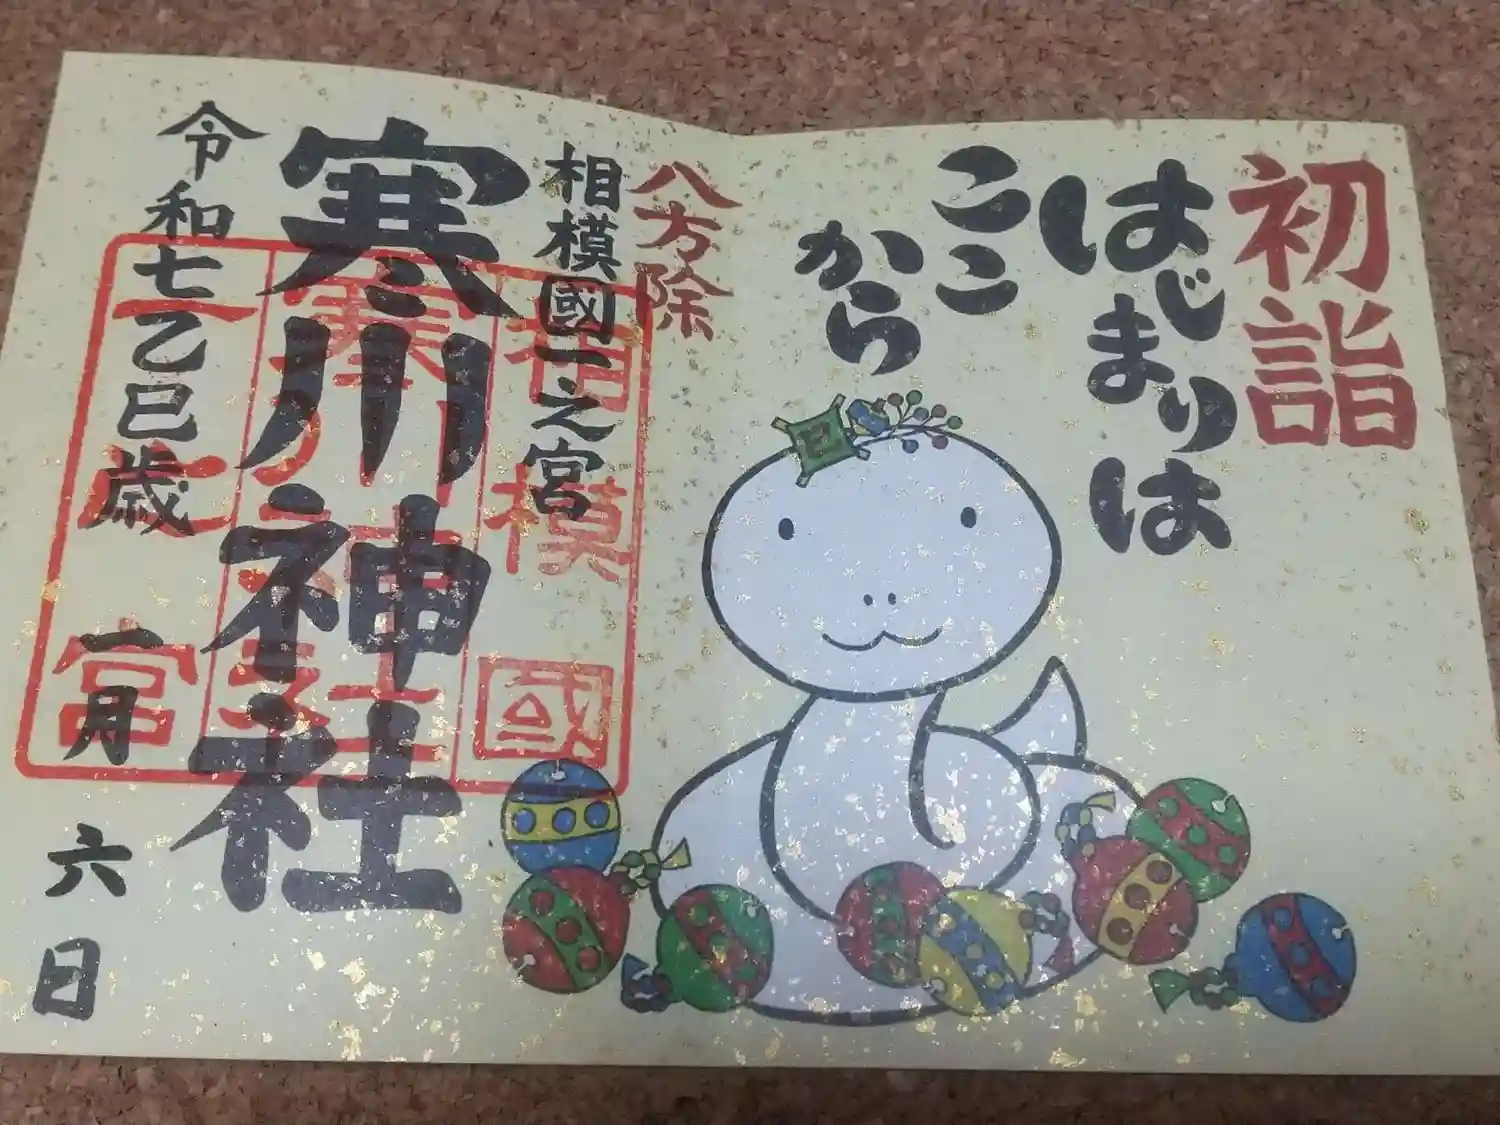 初詣
はじまりは
ここ
から
八方除
相模國一之宮
寒川神社
令和七乙巳歳
一月
六日
相模國
寒川神社
一之宮